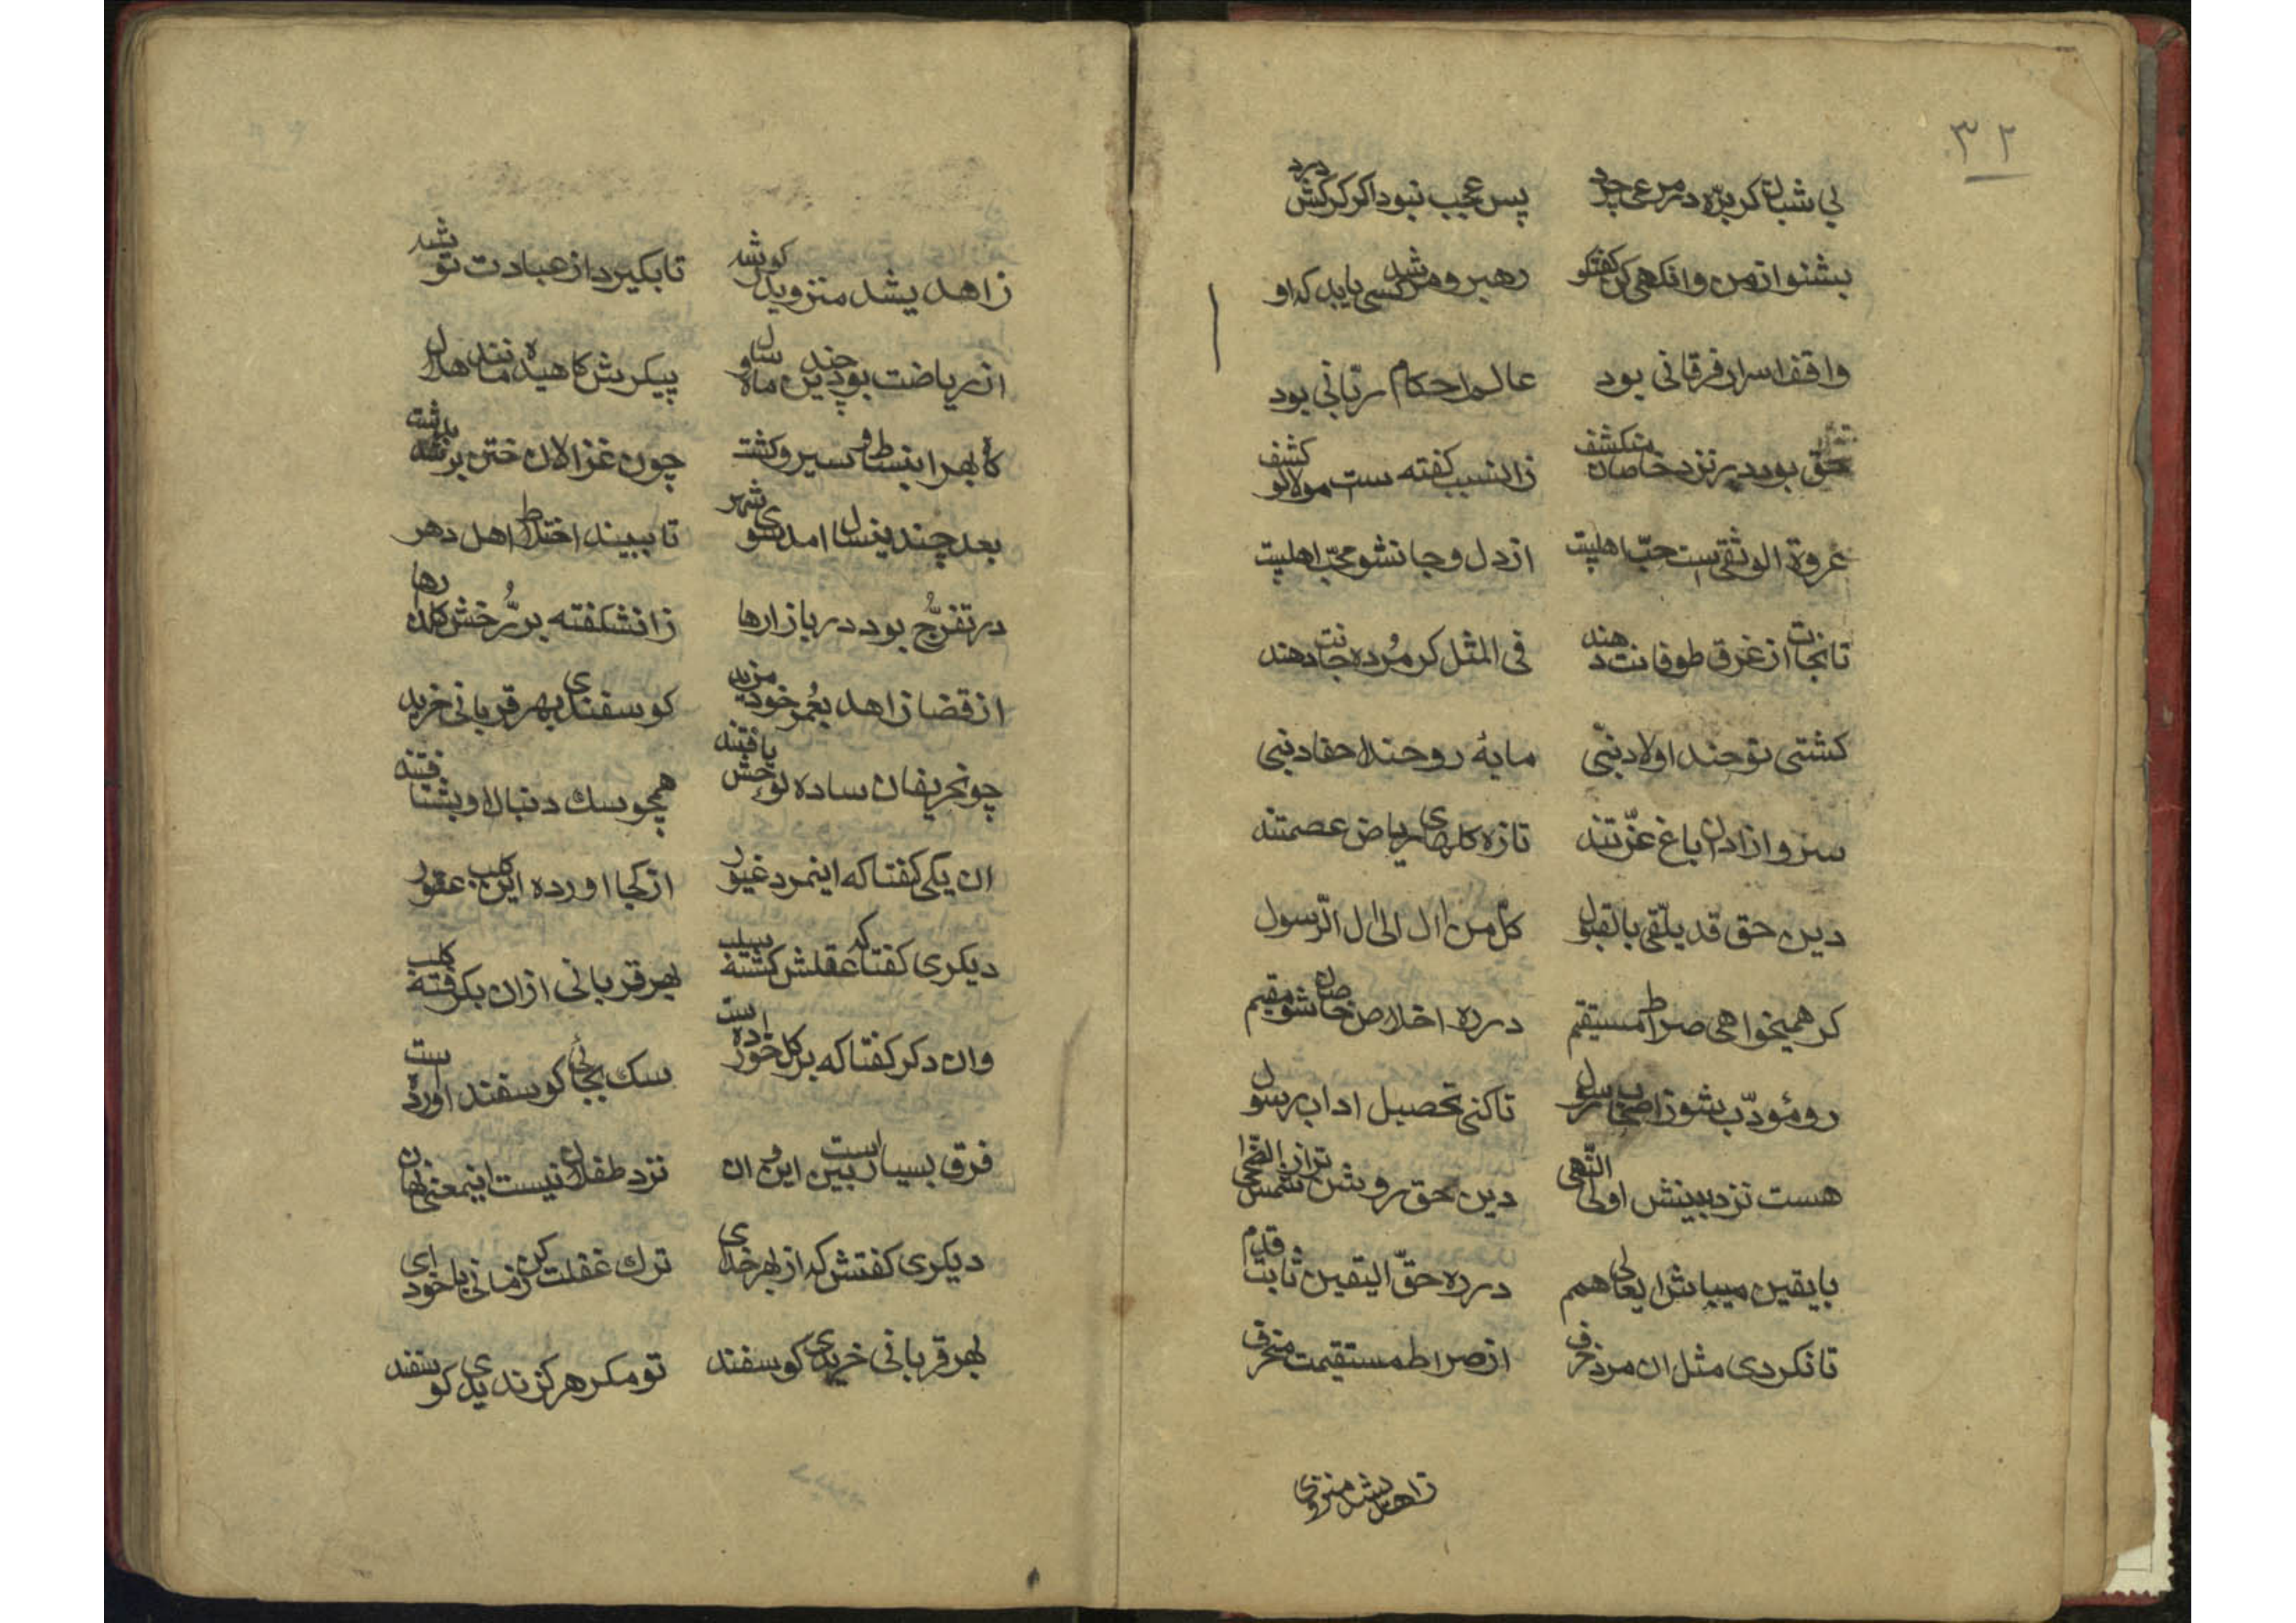 ۳۲
بی شبان کر برّه در مرعی چرد پس عجب نبود اکر کرکش درد
بشنو از من وانکهی کن کفتکو رهبر و مرشد کسی باید که او
واقف اسرار فرقانی بود عالم احکام ربّانی بود
حق بود در نزد خاصان منکشف زانسبب کفته ست مولا لو کشف
عروة الوثقی ست حبّ اهلبیت از دل و جان شو محبّ اهلبیت
تا نجات از غرق طوفانت دهند فی المثل کر مُرده جانت دهند
کشتی نوحند اولاد نبّی مایهٔ روحند احفاد نبی
سرو ازادان باغ عزّتند تازه کلهای ریاض عصمتند
دین حق قد یلتقی بالقبول کلّ من ال الی ال الرّسول
کر همیخواهی صراط مستقیم در ره اخلاص خاصان شو مقیم
رو مؤدّب شو ز اصحاب رسول تا کنی تحصیل اداب رسول
هست نزد بینش اولی النّهی دین حق روشن تر از شمس الضّحی
با یقین میباش ای عالی همم در ره حقّ الیقین ثابت قدم
تا نکردی مثل ان مرد خرف از صراط مستقیمت منحرف
زاهدی شد منزوی
زاهدی شد منزوی در کو شد تا بکیرد از عبادت توشد
از ریاضت بود چندین سال و ماه پیکرش کاهیده مانند هلال
کاه بهر انبساط و سیر و کشت چون غزالان ختن بر شد بدشت
بعد چندین سال امد سوی شهر تا ببیند اختلاط اهل دهر
در تفرُّج بود در بازارها زان شکفته بر رُخش کلنارها
از قضا زاهد بعُمر خود مزید کوسفندی بهر قربانی خرید
چون حریفان ساده لوحش یافتند همچو سك دنبال او بشتافتند
ان یکی کفتا که اینمرد غیور از کجا اورده این کلب عقور
دیکری کفتا که عقلش کشته سلب بهر قربانی ازان بکرفته کلب
وان دکر کفتا که بر کل خورده است سك بجای کوسفند اورده است
فرق بسیار است بین این و ان نزد طفلان نیست اینمعنی نهان
دیکری کفتش که از بهر خدای ترك غفلت کن زمانی با خود ای
بهر قربانی خریدی کوسفند تو مکر هرکز ندیدی کوسفند